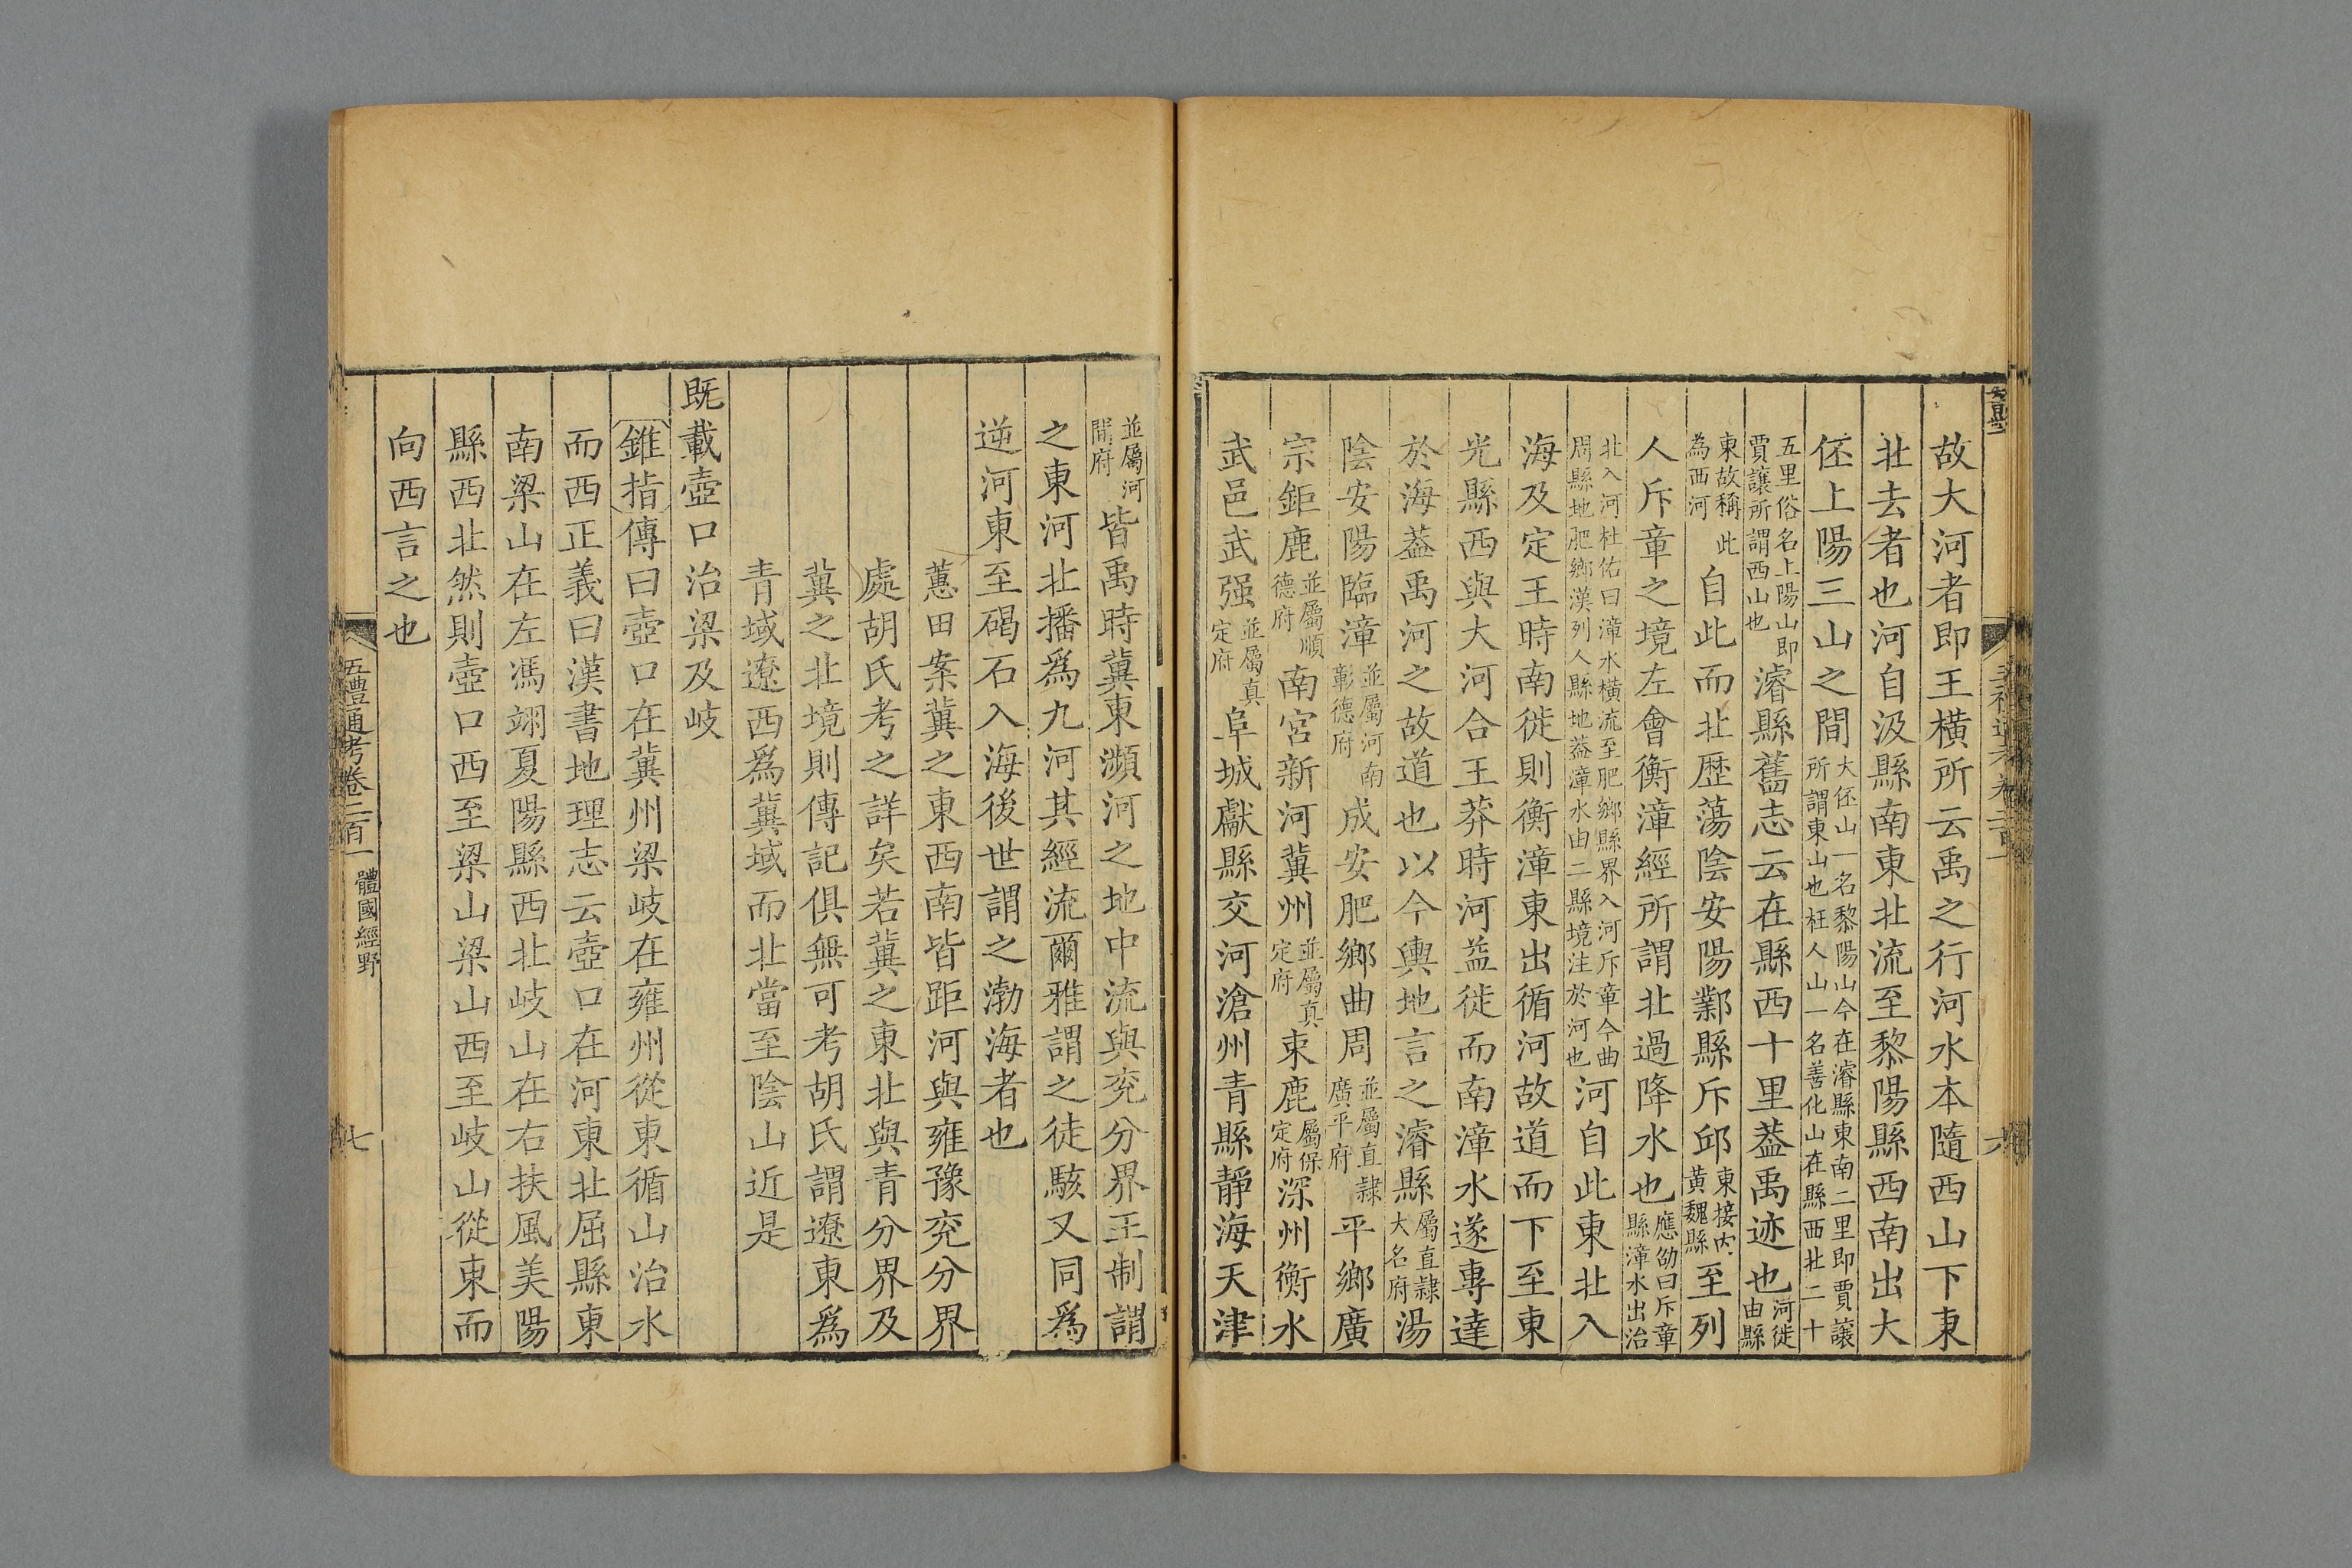 故大河者即王橫所云禹之行河水本隨西山下東
北去者也河自汲縣南東北流至黎陽縣西南出大
伾上陽三山之間大伾山一名黎陽山今在濬縣東南二里即賈讓所謂東山也枉人山一名善化山在縣西北二十
五里俗名上陽山即賈讓所謂西山也濬縣舊志云在縣西十里葢禹迹也河徙由縣
東故稱此為西河自此而北歷蕩陰安陽鄴縣斥邱東接內黃魏縣至列
人斥章之境左會衡漳經所謂北過降水也應劭曰斥章縣漳水出治
北入河杜佑曰漳水橫流至肥鄉縣界入河斥章今曲周縣地肥鄉漢列人縣地葢漳水由二縣境注於河也河自此東北入
海及定王時南徙則衡漳東出循河故道而下至東
光縣西與大河合王莽時河益徙而南漳水遂專達
於海葢禹河之故道也以今輿地言之濬縣屬直隸大名府湯
陰安陽臨漳並屬河南彰德府成安肥鄉曲周並屬直隸廣平府平鄉廣
宗鉅鹿並屬順德府南宮新河冀州並屬真定府束鹿屬保定府深州衡水
武邑武强並屬真定府阜城獻縣交河滄州青縣靜海天津
六
並屬河間府皆禹時冀東瀕河之地中流與兖分界王制謂
之東河北播爲九河其經流爾雅謂之徒駭又同爲
逆河東至碣石入海後世謂之渤海者也
蕙田案冀之東西南皆距河與雍豫兖分界
處胡氏考之詳矣若冀之東北與青分界及
冀之北境則傳記俱無可考胡氏謂遼東爲
青域遼西爲冀域而北當至陰山近是
既載壺口治梁及岐
錐指傳曰壺口在冀州梁岐在雍州從東循山治水
而西正義曰漢書地理志云壺口在河東北屈縣東
南梁山在左馮翊夏陽縣西北岐山在右扶風美陽
縣西北然則壺口西至梁山梁山西至岐山從東而
向西言之也
五禮通考卷二百一 體國經野
七